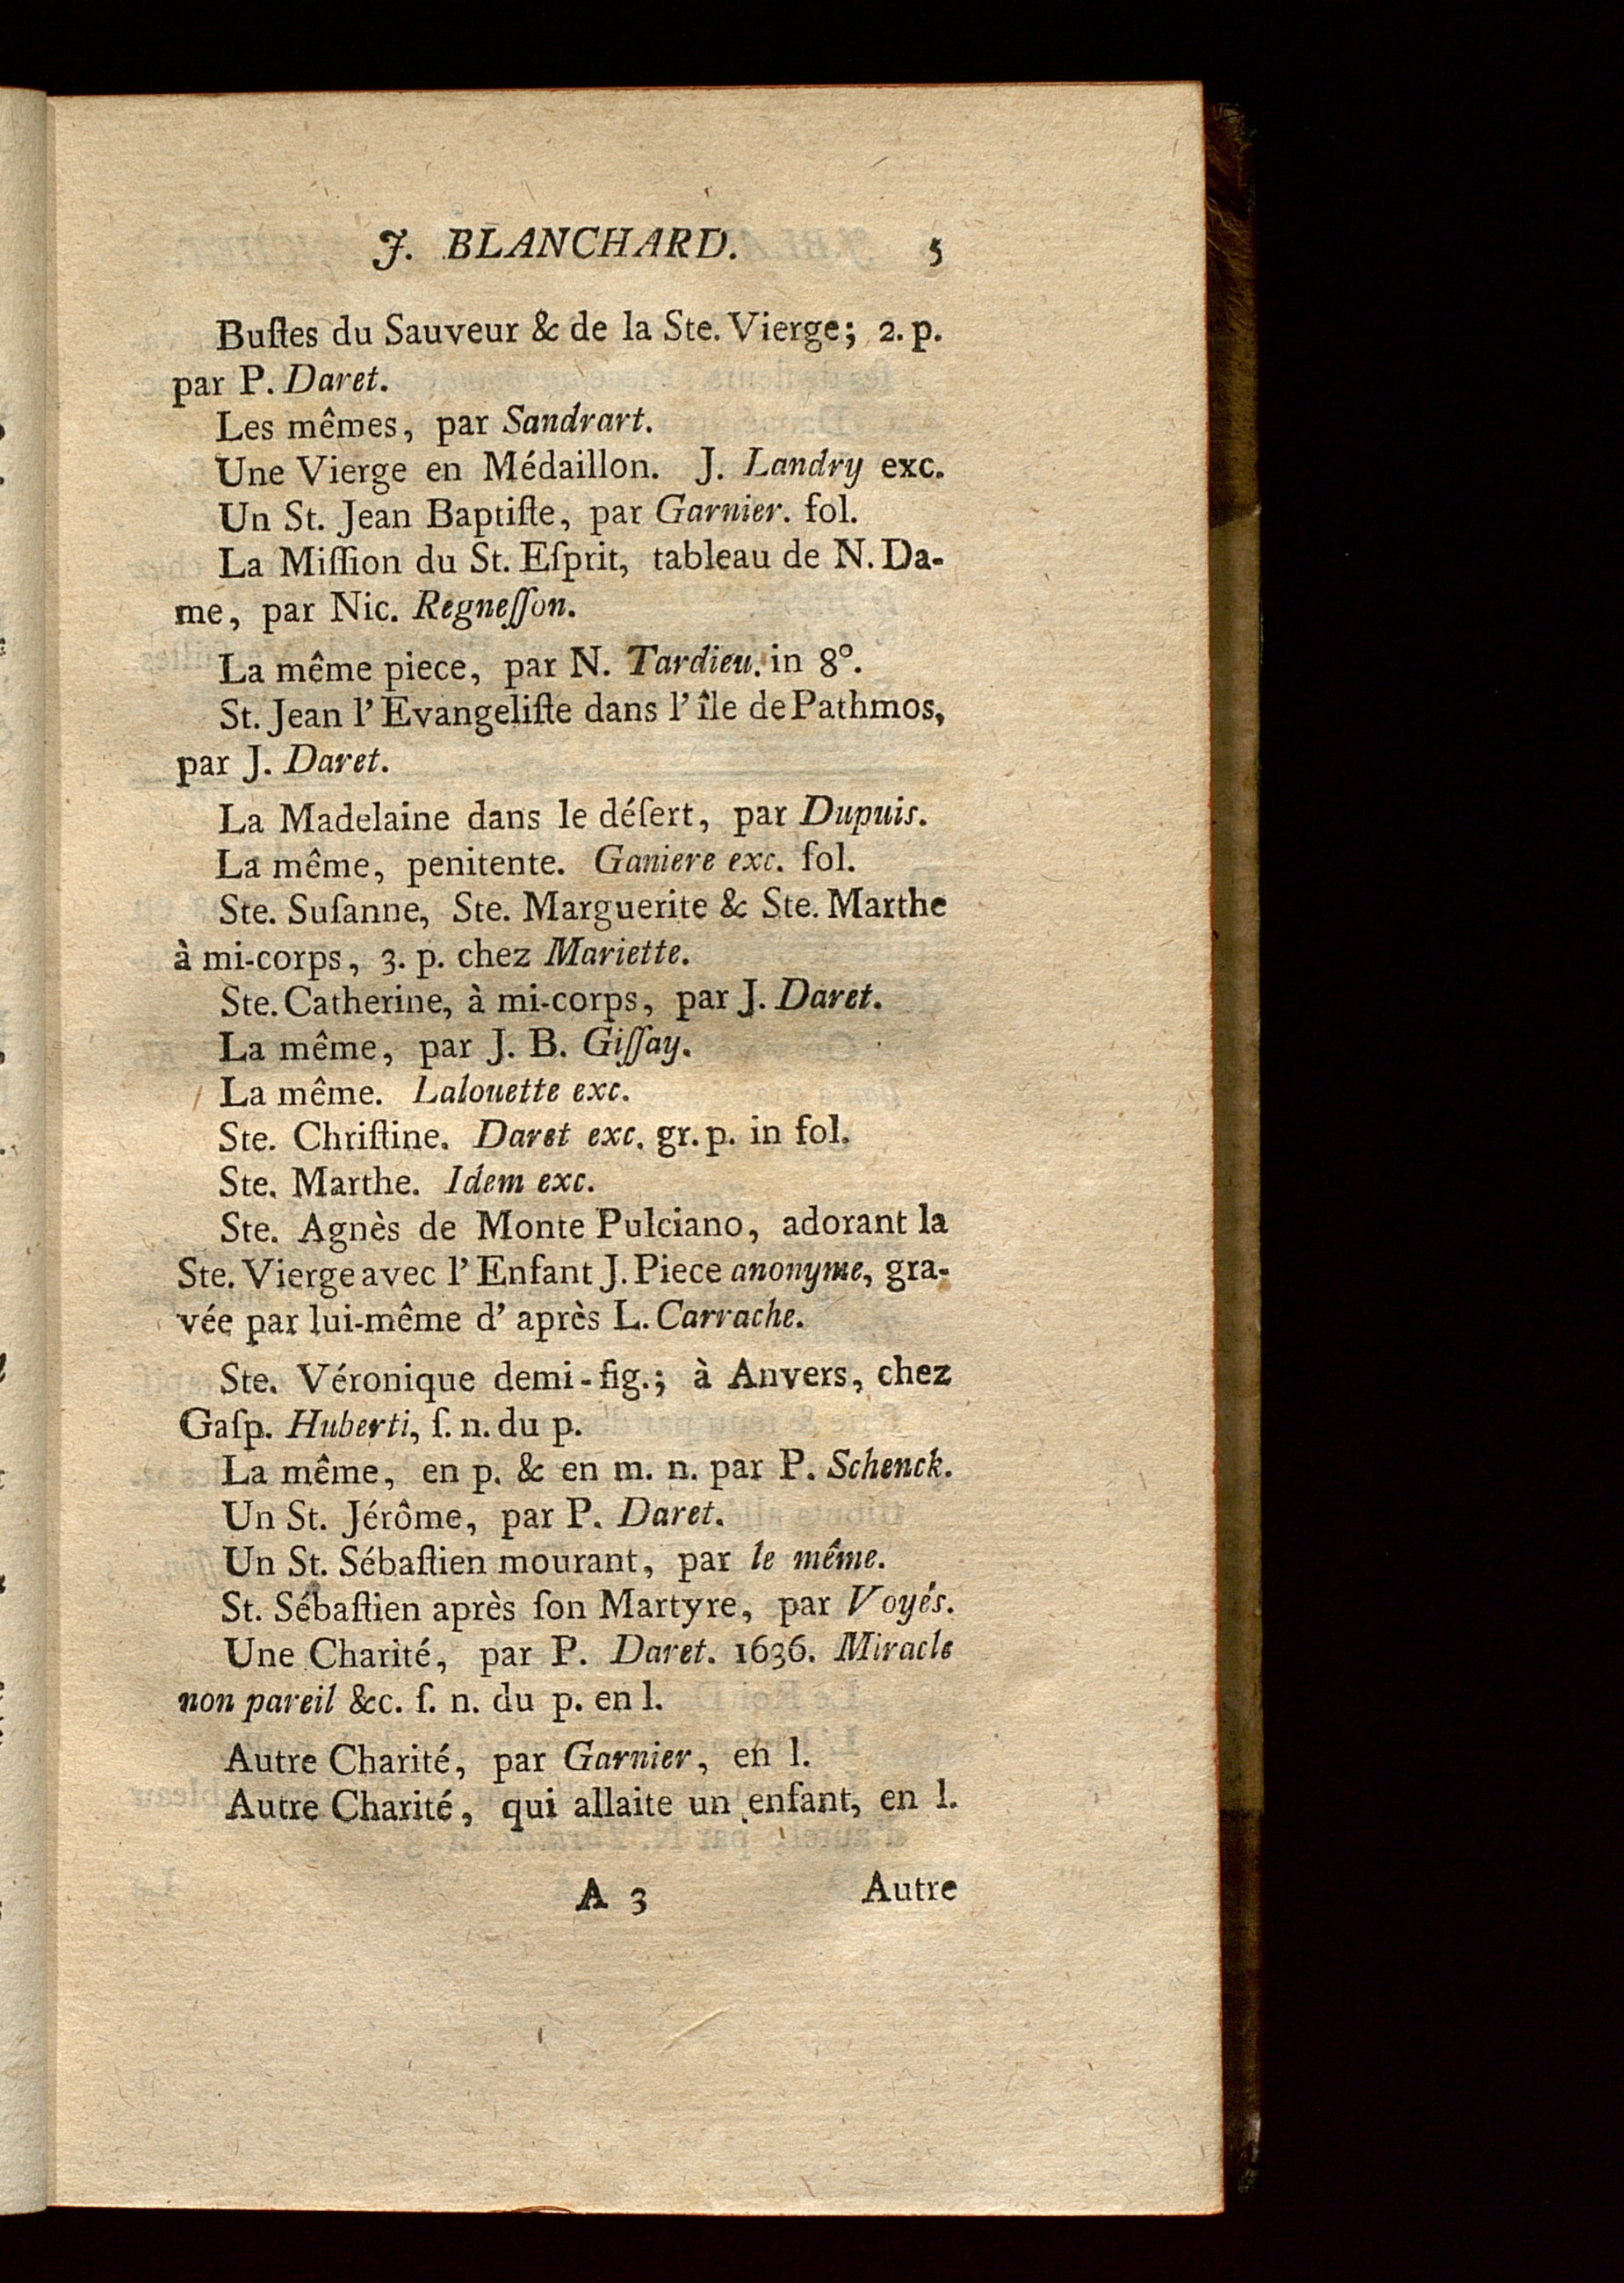 J. BLANCHARD. 5
Buſtes du Sauveur & de la Ste. Vierge; 2. p.
par P. Daret.
Les mêmes, par Sandrart.
Une Vierge en Médaillon. J. Landry exc.
Un St. Jean Baptiſte, par Garnier. fol.
La Miſſion du St. Eſprit, tableau de N. Da-
me, par Nic. Regneſſon.
La même piece, par N. Tardieu. in 8°.
St. Jean l' Evangeliſte dans l' île de Pathmos,
par J. Daret.
La Madelaine dans le déſert, par Dupuis.
La même, penitente. Ganiere exc. fol.
Ste. Suſanne, Ste. Marguerite & Ste. Marthe
à mi-corps, 3. p. chez Mariette.
Ste. Catherine, à mi-corps, par J. Daret.
La même, par J. B. Giſſay.
La même. Lalouette exc.
Ste. Chriſtine. Daret exc. gr. p. in fol.
Ste. Marthe. Idem exc.
Ste. Agnès de Monte Pulciano, adorant la
Ste. Vierge avec l' Enfant J. Piece anonyme, gra-
vée par lui-même d' après L. Carrache.
Ste. Véronique demi-fig.; à Anvers, chez
Gaſp. Huberti, ſ. n. du p.
La même, en p. & en m. n. par P. Schenck.
Un St. Jérôme, par P. Daret.
Un St. Sébaſtien mourant, par le même.
St. Sébaſtien après ſon Martyre, par Voyés.
Une Charité, par P. Daret. 1636. Miracle
non pareil &c. ſ. n. du p. en l.
Autre Charité, par Garnier, en l.
Autre Charité, qui allaite un enfant, en l.
A 3 Autre